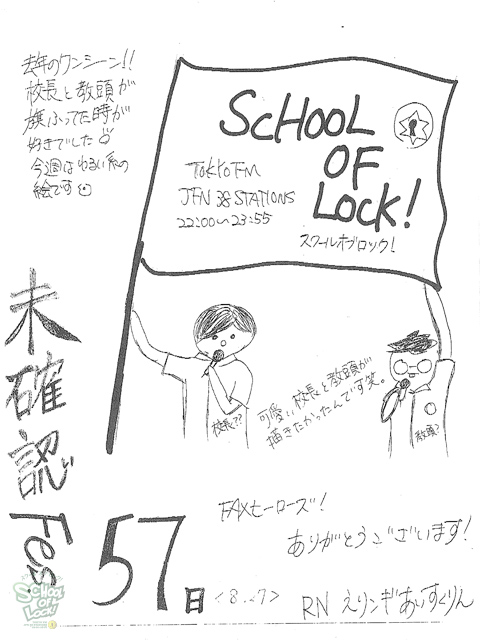 去年のワンシーン!!
校長と教頭が
旗ふってた時が
好きでした
今週はゆるい系の
絵です
SCHOOL
OF
LOCK!
TOKYO FM
JFN 38 STATIONS
22:00~23:55
スクールオブロック!
校長??
教頭?
可愛い校長と教頭が
描きたかったんです笑。
未確認Fes
57日
<8...7>
FAXヒーローズ!
ありがとうございます!
RN えりンギあいすくりん
SCHOOL OF LOCK!